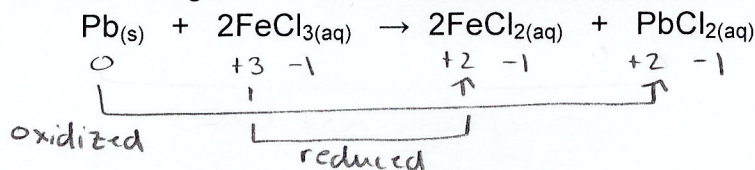 Pb(s) + 2FeCl3(aq) → 2FeCl2(aq) + PbCl2(aq)
0 +3 -1 +2 -1 +2 -1
oxidized
reduced